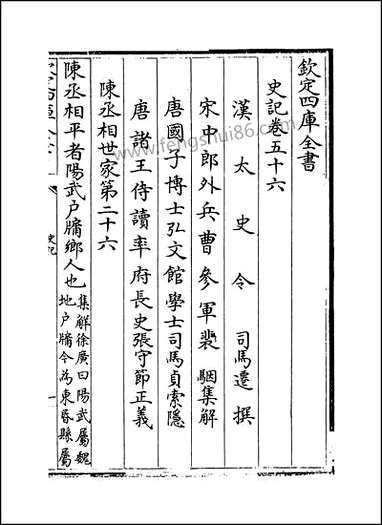 欽定四庫全書
史記卷五十六
漢太史令司馬遷撰
宋中郎外兵曹參軍裴駰集解
唐國子博士弘文館學士司馬貞索隱
唐諸王侍讀率府長史張守節正義
陳丞相世家第二十六
陳丞相平者陽武户牖鄉人也集解徐廣曰陽武屬魏
地户牖今為東昏縣屬
史記
一
www.fengshui86.com